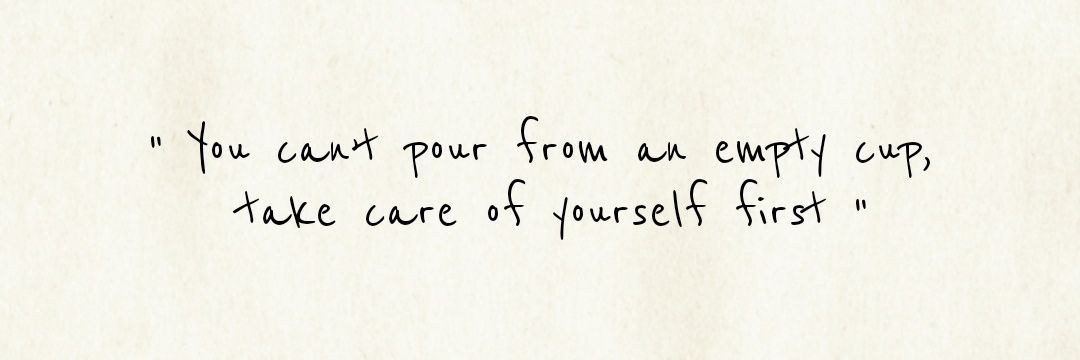 " You can't pour from an empty cup,
take care of yourself first "